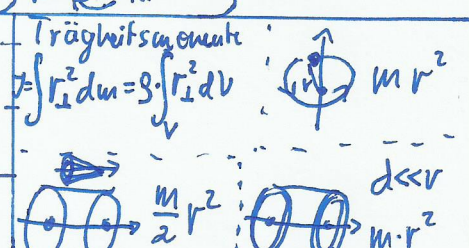 Trägheitsmomente
J=∫r⊥²dm=ρ·∫r⊥²dV
V
r
m r²
m/2 r²
d<<r
m·r²